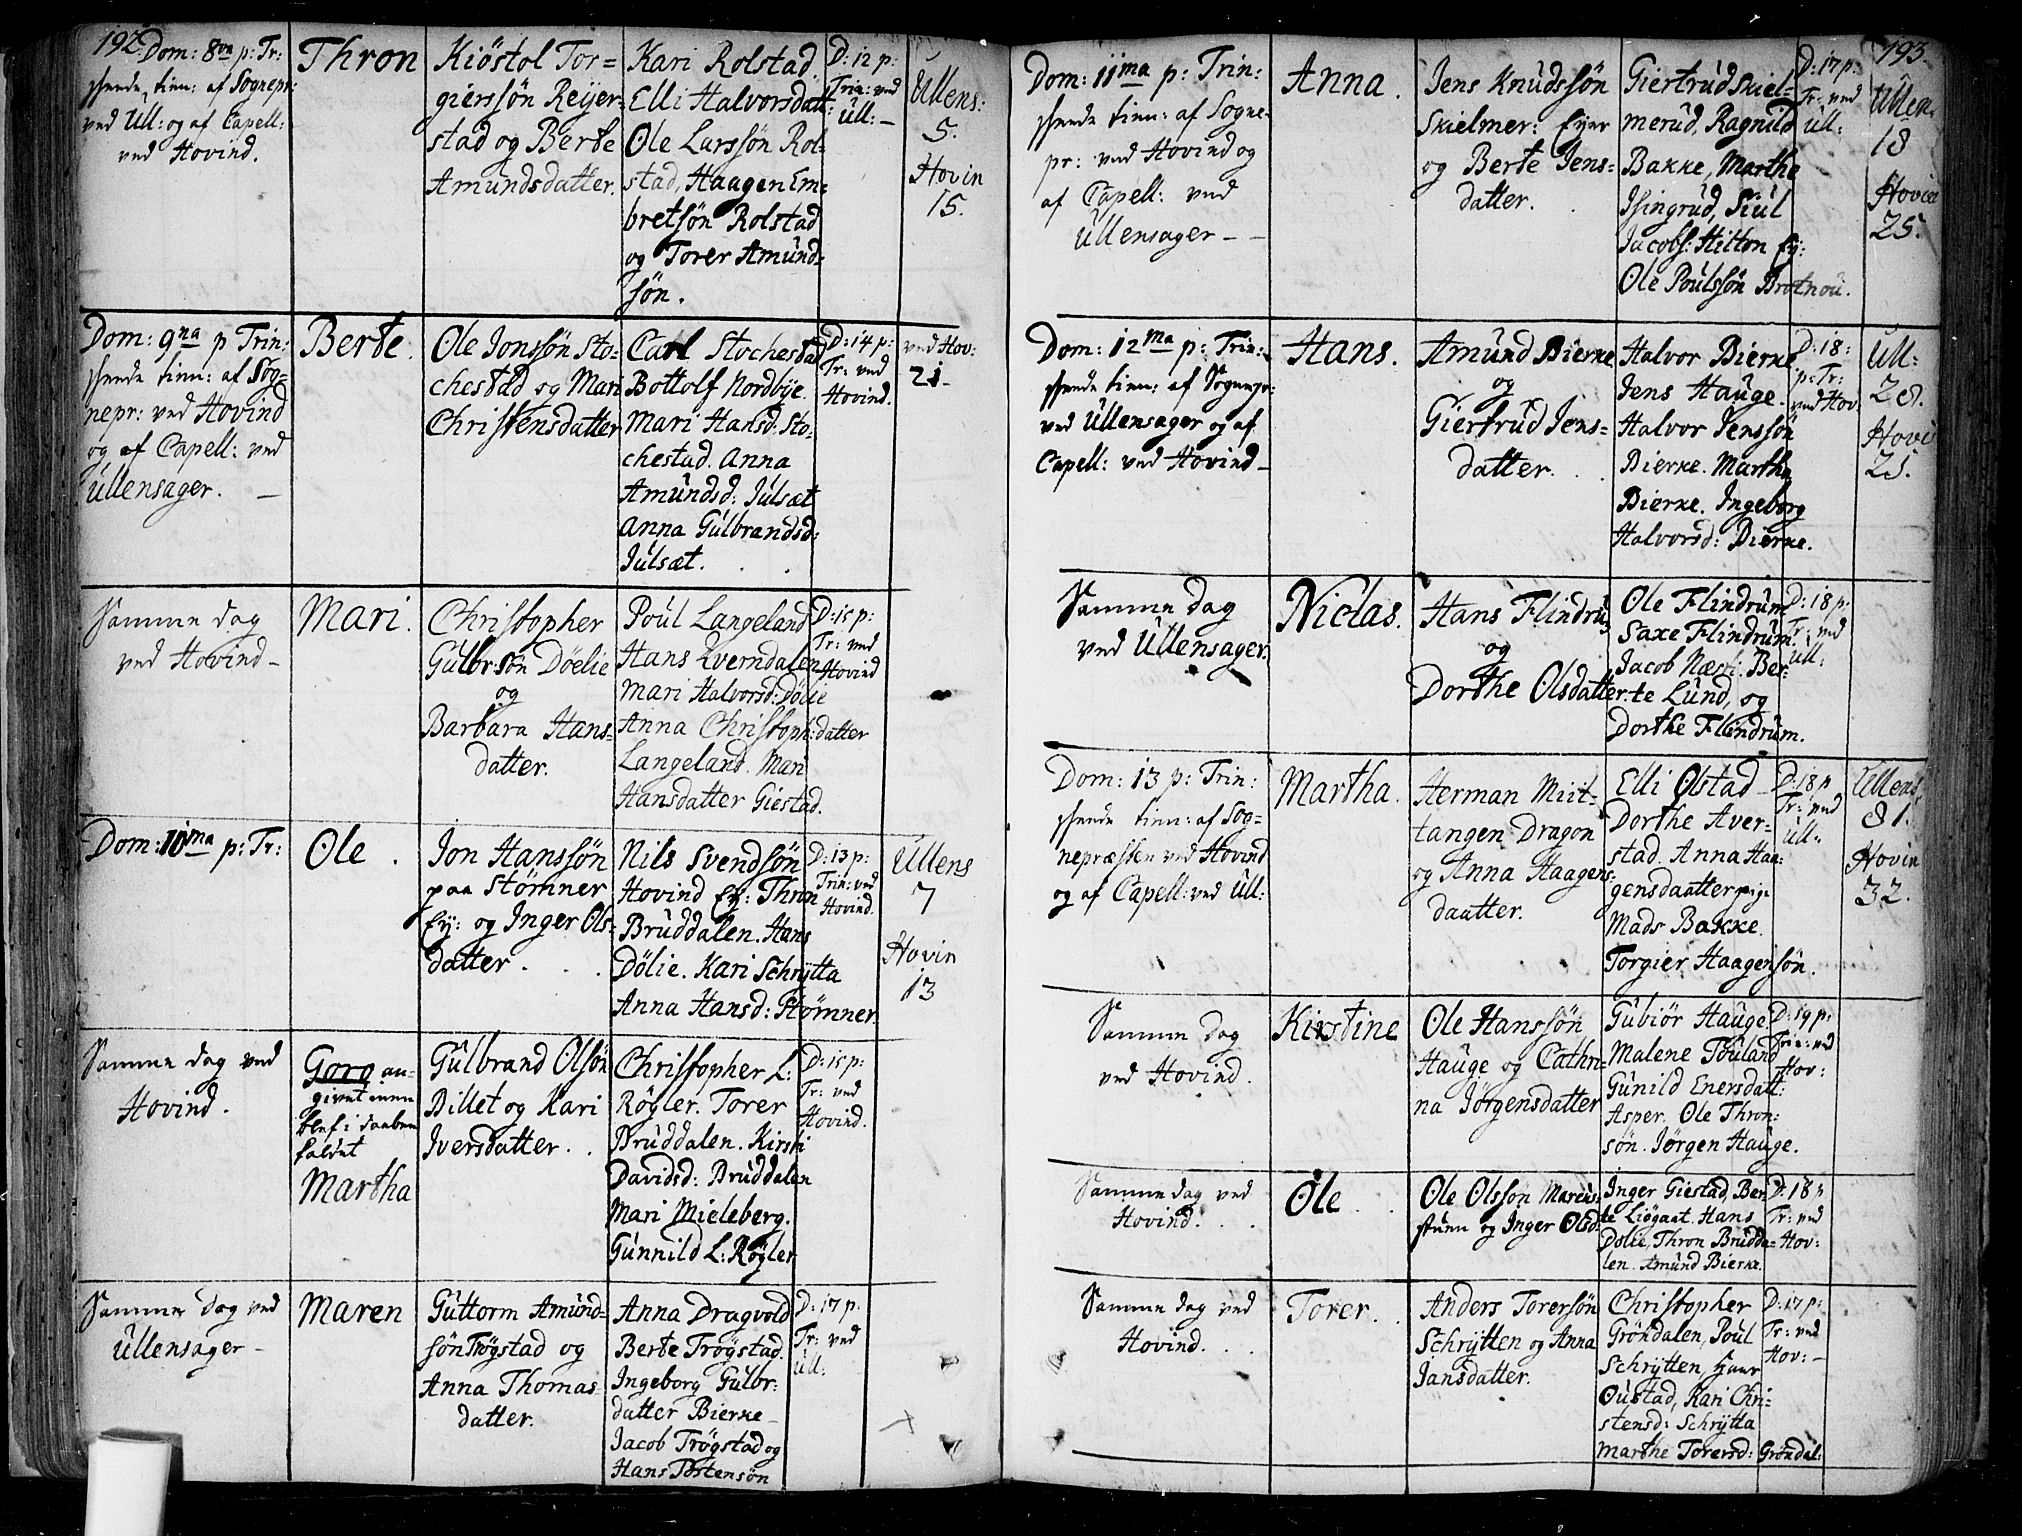 192
Dom: 8va p: Tr:
tienn: af Sognepr:
ved Ull: og af Capell:
ved Hovind.
Thron
Kiöstol Tor=
gierssön Reÿer=
stad og Berte
Amundsdatter.
Kari Rolstad
Elli Halvorsdatt:
Ole Larssön Rol=
stad, Haagen Em=
bretsön Rolstad
og Torer Amund=
sön.
D: 12 p:
Trin: ved
Ull: -
Ullens:
5.
Hovin
15.
Dom: 9na p Trin:
tienn: af Sog=
nepr: ved Hovind
og af Capell: ved
Ullensager. -
Berte.
Ole Jonssön Sto=
chestad og Mari
Christensdatter
Carl Stochestad
Bottolf Nordbÿe.
Mari Hansd: Sto=
chestad. Anna
Amundsd: Julsæt
Anna Gulbrandsd:
Julsæt.
D: 14 p:
Tr: ved
Hovind.
ved Hov:
21.
Samme dag
ved Hovind -
Mari.
Christopher
Gulbr:sön Döelie
og
Barbara Hans=
datter.
Poul Langeland
Hans Lverndalen
Mari Halvorsd: Dölie
Anna Christoph:datter
Langeland. Mari
Hansdatter Giestad.
D: 15 p:
Tr: ved
Hovind
Dom: 10ma p: Tr:
Ole.
Jon Hanssön
paa Stömner
Eÿ: og Inger Ols=
datter.
Nils Svendsön
Hovind Eÿ: Thron
Bruddalen. Hans
Dölie. Kari Schrÿtta
Anna Hansd: Stömner.
D: 13 p:
Trin: ved
Hovind.
Ullens
7
Hovin
13
Samme dag ved
Hovind.
Goro an=
givet men
blef i daaben
kaldet
Martha
Gulbrand Olsön
Billet og Kari
Iversdatter.
Christopher L:
Rögler. Torer
Bruddalen. Kirsti
Davidsd: Bruddalen
Mari Mieleberg.
Gunnild L: Rögler
D: 15 p:
Tr: ved
Hovind.
Samme dag ved
Ullensager -
Maren
Guttorm Amund=
sön Trögstad og
Anna Thomas=
datter.
Anna Dragvold
Berte Trögstad.
Ingeborg Gulbr:
datter Bierke -
Jacob Trögstad og
Hans Tostensön
D: 17 p:
Tr: ved
Ull:
193.
Dom: 11ma p: Trin:
tienn: af Sogne=
pr: ved Hovind og
af Capell: ved
Ullensager - -
Anna.
Jens Knudssön
Skielmer: Eÿer
og Berte Jens=
datter.
Giertrud Skiel=
merud, Ragnild
Bakke, Marthe
Isingrud, Siul
Jacobs: Hilton Eÿ:
Ole Poulssön Brotnou.
D: 17 p:
Tr: ved
Ull:
Ullen.
18
Hovin
25.
Dom: 12ma p: Trin:
tienn: af Sognepr:
ved Ullensager og af
Capell: ved Hovind -
Hans.
Amund Bierke
og
Giertrud Jens=
datter.
Halvor Bierke
Jens Hauge.
Halvor Jenssön
Bierke. Martha
Bierke. Ingeborg
Halvorsd: Bierke.
D: 18:
p: Tr:
ved Hov.
Ull:
28.
Hovi
25.
Samme Dag
ved Ullensager.
Niclas.
Hans Flindru
og
Dorthe Olsdatter.
Ole Flindrum
Saxe Flindrum.
Jacob Næsti. Ber=
te Lund, og
Dorthe Flindrum.
D: 18 p:
Tr: ved
Ull:
Dom: 13 p: Trin:
tienn: af Sog=
nepræsten ved Hovind
og af Capell: ved Ull:
Martha.
Herman Miit=
tangen Dragon
og Anna Haagens=
daatter.
Elli Olstad
Dorthe Aver=
stad. Anna Haa=
gensdaatter pige
Mads Bakke.
Torgier Haagensön.
D: 18 p
Tr: ved
Ull:
Ullens
31.
Hovin
32.
Samme Dag
ved Hovind.
Kirstine
Ole Hanssön
Hauge og Cathri=
na Jörgensdatter
Gubiör Hauge
Malene Touland
Gunild Enersdatt:
Asper. Ole Thron=
sön. Jörgen Hauge.
D: 19 p:
Trin: ved
Hov:
Samme dag ved
Hovind.
Ole
Ole Olssön Marcus=
stuen og Inger Olsd:
Inger Giestad, Ber=
te Liögaat. Hans
Dölie, Thron Brudda=
len. Amund Bierke.
D: 18 p
Tr: ved
Hov:
Samme dag ved
Hovind.
Torer.
Anders Torersön
Schrÿtten og Anna
Jansdatter.
Christopher
Gröndalen, Poul
Schrÿtten, Hans
Oustad, Kari Chri=
stensd: Schrÿtta
Marthe Torersd: Gröndal:
D: 17 p:
Tr: ved
Hov: -